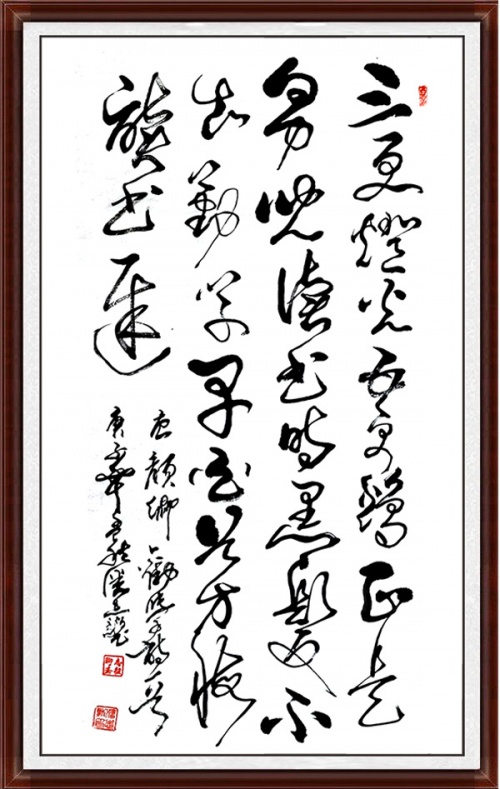 三更燈光五更雞正是
男兒讀書時黑髮不
知勤學早白首方悔
讀書遲
唐顏卿勸學詩一首
庚子年